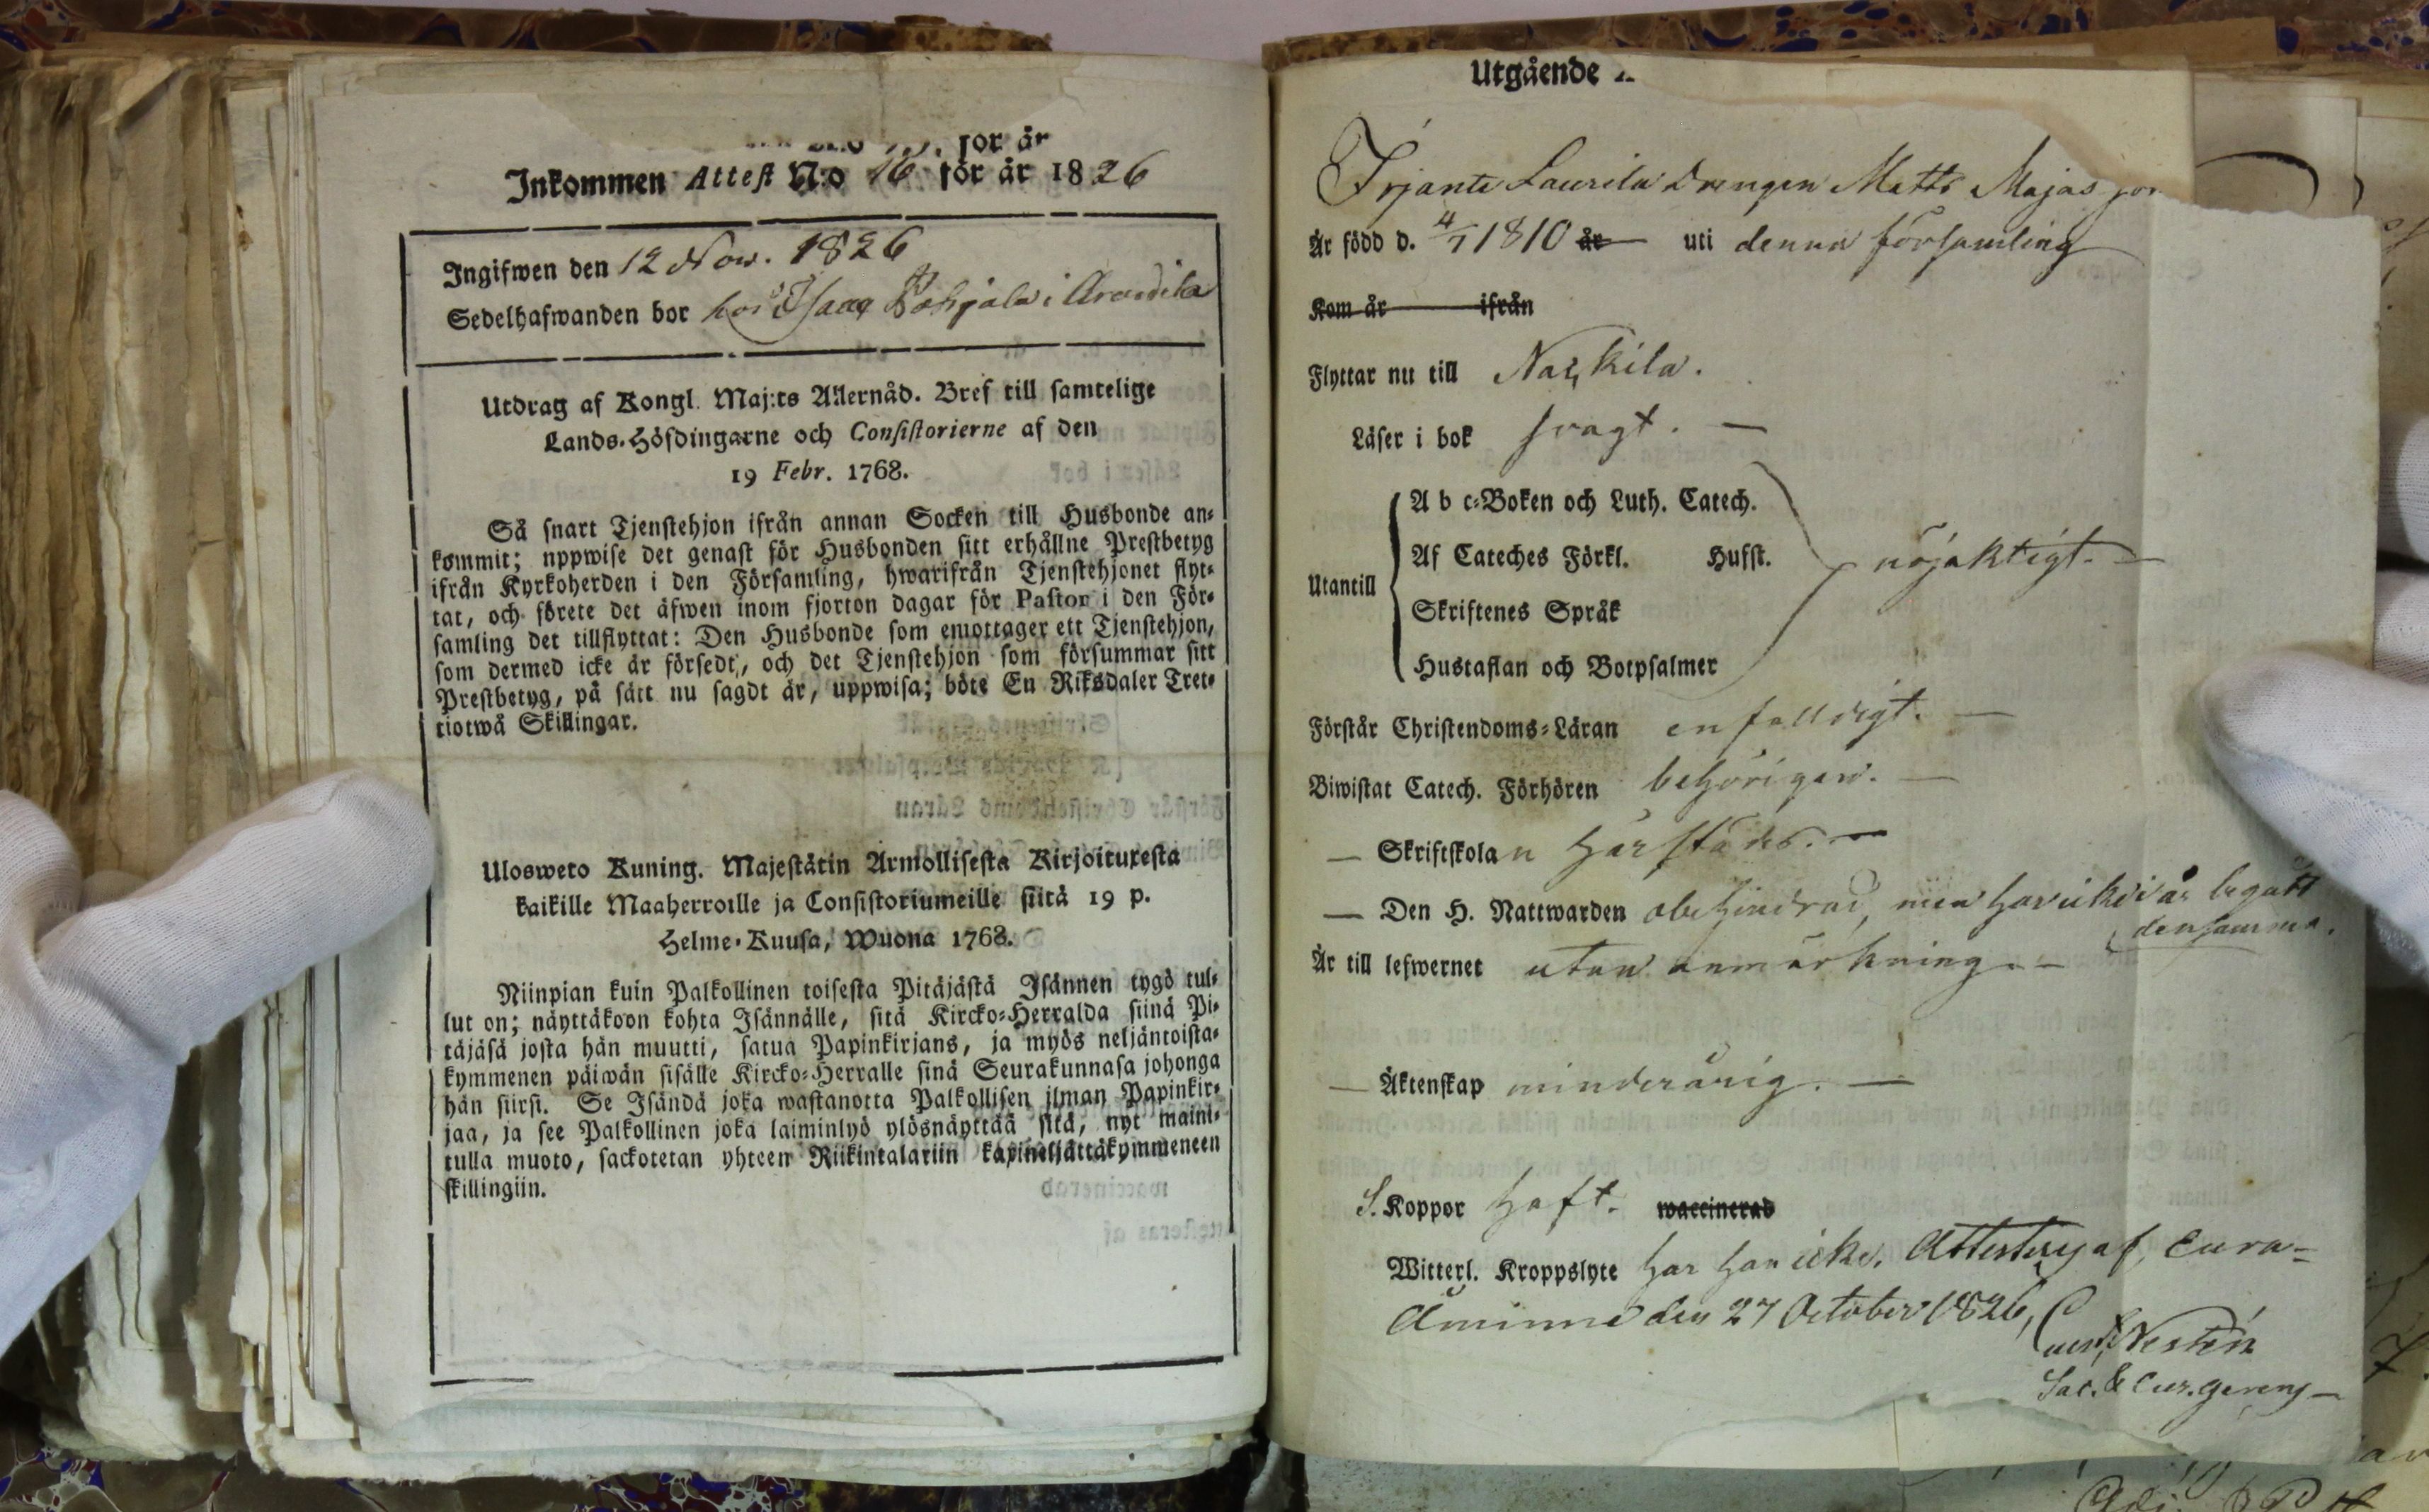 för år
Inkommen Attest N:o 16 för år 1826
Ingifwen den 12 Nov. 1826
Sedelhafwanden bor hos Isaac Pohjala i Arandila
Utdrag af Kongl. Maj:ts Allernåd. Bref till samtelige
Lands-Höfdingarne och Consistorierne af den
19 Febr. 1768.
Så snart Tjenstehjon ifrån annan Socken till Husbonde an-
kommit; nppwise det genast för Husbonden sitt erhållne Prestbetyg
ifrån Kyrkoherden i den Församling, hwarifrån Tjenstehjonet flyt-
tat, och förete det äfwen inom fjorton dagar för Pastor i den För-
samling det tillflyttat: Den Husbonde som emottager ett Tjenstehjon,
som dermed icke är försedt, och det Tjenstehjon som försummar sitt
Prestbetyg, på sätt nu sagdt är, uppwisa; böte En Riksdaler Tret-
tiotwå Skillingar.
Ulosweto Kuning. Majestätin Armollisesta Kirjoituxesta
kaikille Maaherroille ja Consistoriumeille siitä 19 p.
Helme-Kuusa, Wuona 1768.
Niinpian kuin Palkollinen toisesta Pitäjästä Isännen tygö tul-
lut on; näyttäkoon kohta Isännälle, sitä Kircko-Herralda siinä Pi-
täjäsä josta hän muutti, satua Papinkirjans, ja myös neljäntoista-
kymmenen päiwän sisälle Kircko-Herralle sinä Seurakunnasa johonga
hän siirsi. Se Isändä joka wastanotta Palkollisen ilman Papinkir-
jaa, ja see Palkollinen joka laiminlyö ylösnäyttää sitä, nyt maini-
tulla muoto, sackotetan yhteen Riikintalariin kaxineljättäkymmeneen
skillingiin.
Utgående
Irjante Laurila Drengen Matts Majas
Är född d. 4/7 1810 år uti denna församling
Kom år ifrån
Flyttar nu till Nakkila.
Läser i bok svagt. —
A b c-Boken och Luth. Catech.
Af Cateches Förkl. Hufst.
Utantill nöjaktigt. —
Skriftenes Språk
Hustaflan och Botpsalmer
Förstår Christendoms-Läran enfalldigt. —
Biwistat Catech. Förhören behörigen. —
— Skriftskolan härstädes. —
— Den H. Nattwarden obehindrad, men har icke i år begått
densamma.
Är till lefwernet utan anmärkning. —
— Äktenskap minderårig. —
S. Koppor haft. waccinerad
Witterl. Kroppslyte har han icke. Attesteras af Eura-
Åminne den 27 October 1826,
Nestén
Sac. &